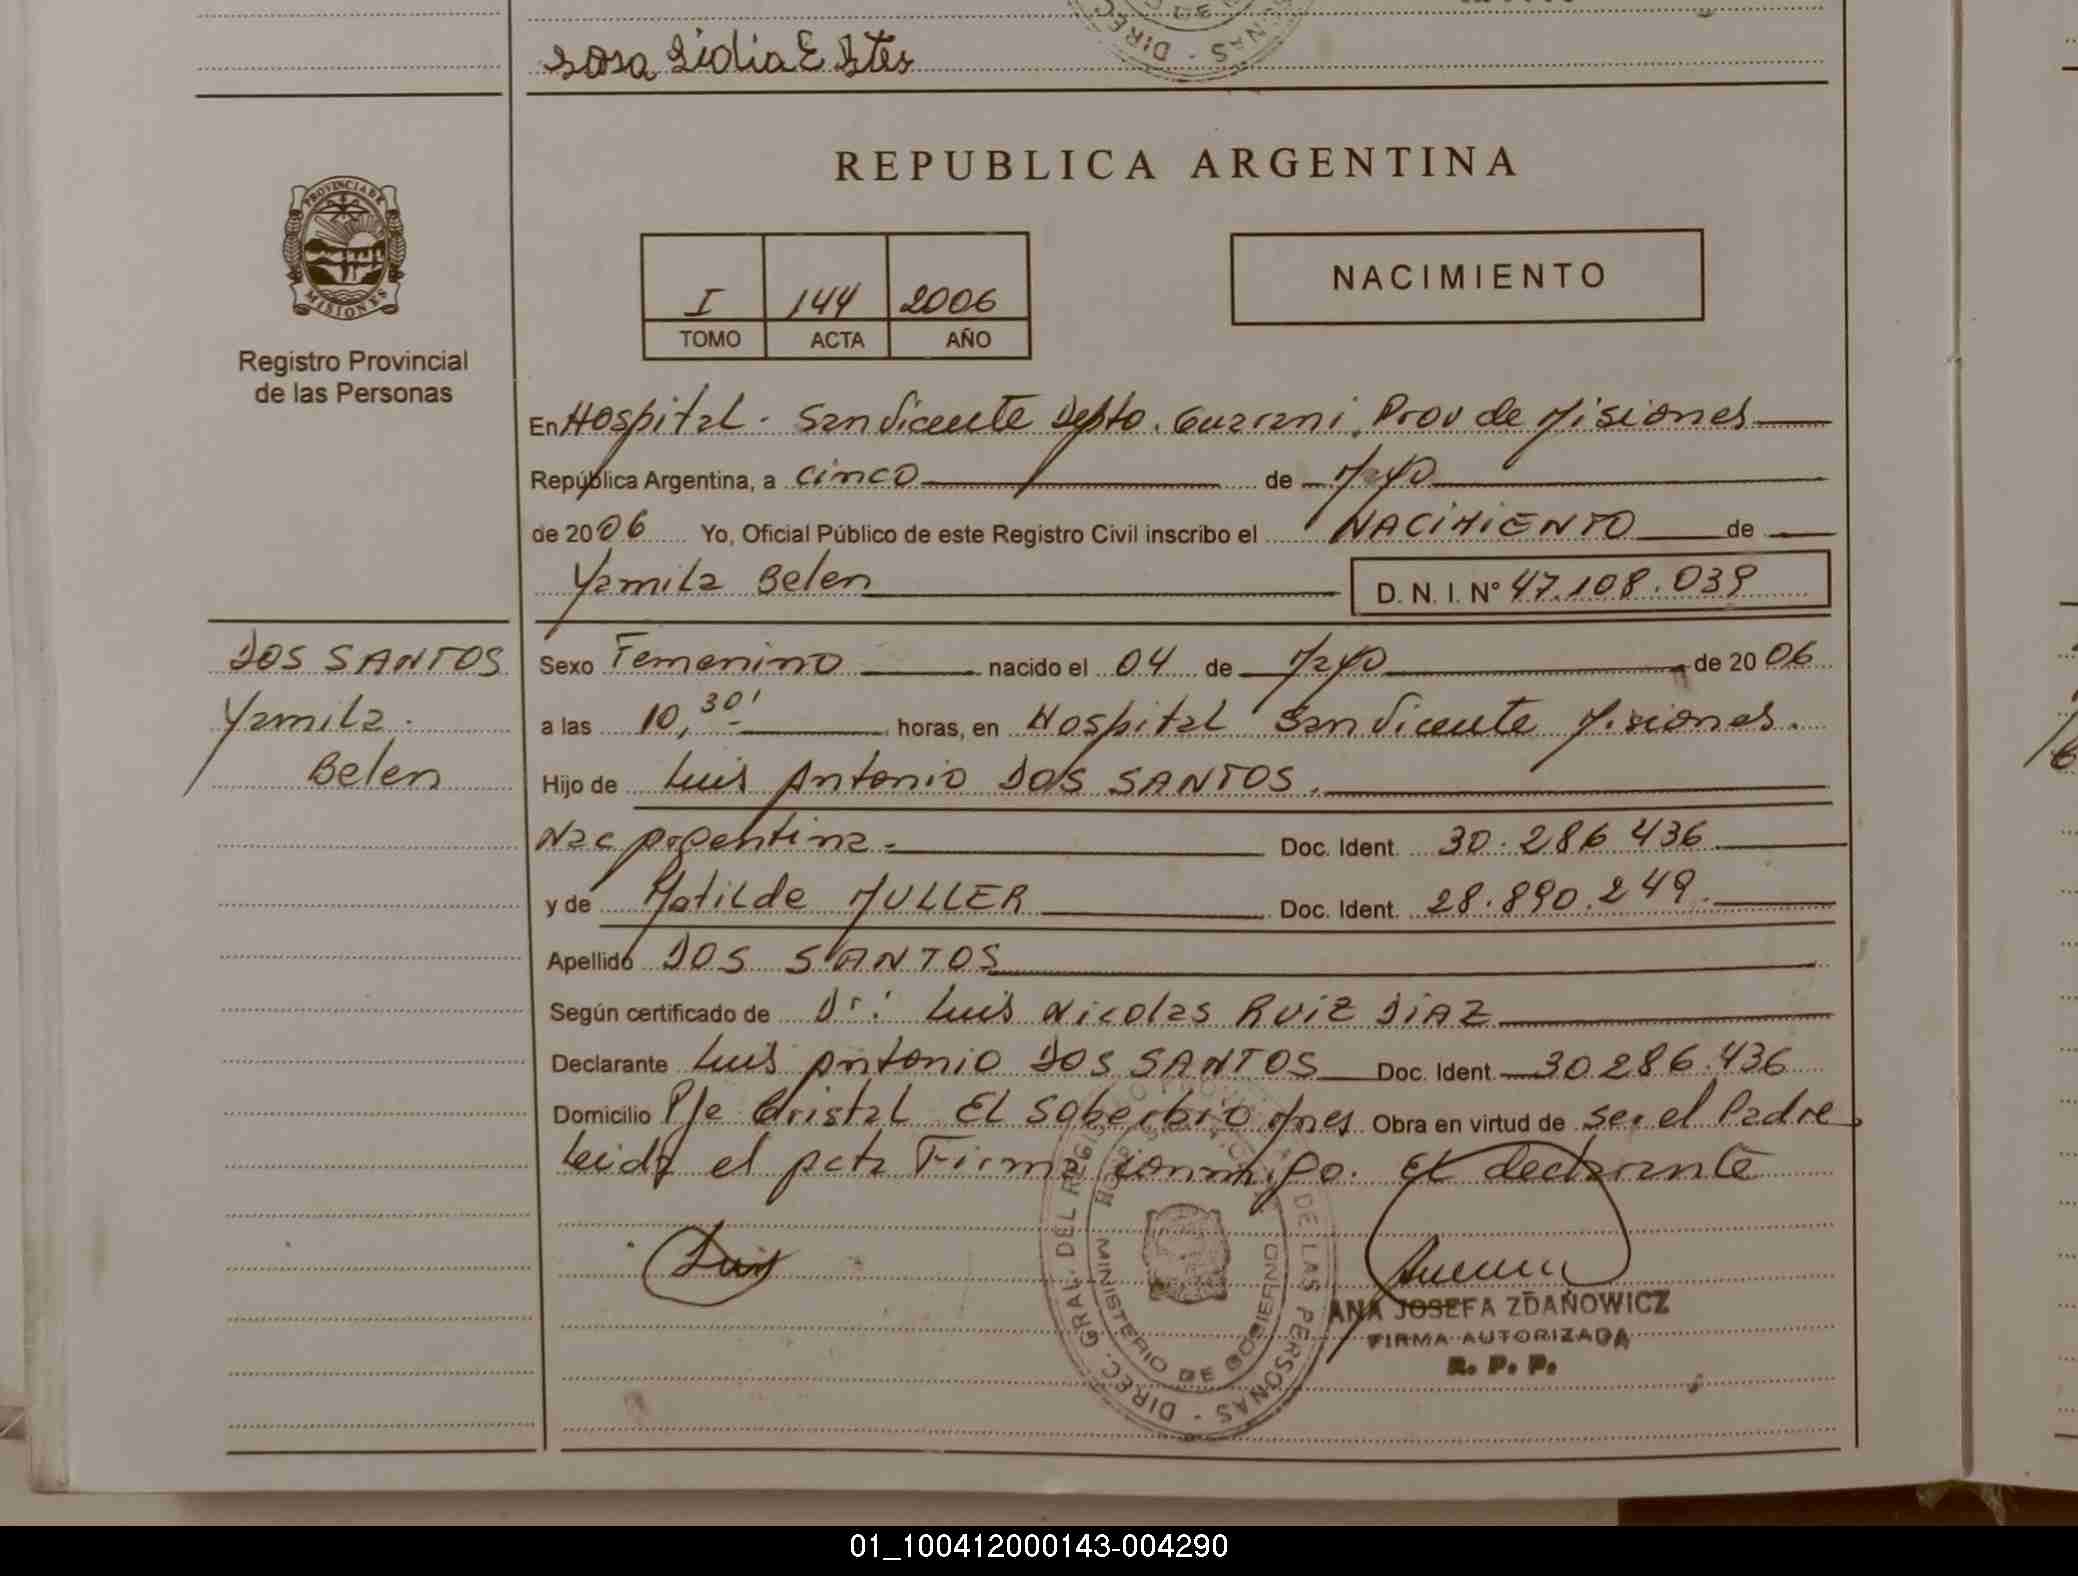 Sosa Lidia Ester
REPUBLICA ARGENTINA
PROVINCIA DE
MISIONES
Registro Provincial
de las Personas
I 144 2006
TOMO ACTA AÑO
NACIMIENTO
En Hospital. San Vicente Depto. Guarani. Prov de Misiones
República Argentina, a cinco de Mayo
de 2006 Yo, Oficial Público de este Registro Civil inscribo el NACIMIENTO de
Yamila Belen D. N. I. N° 47.108.039
DOS SANTOS
Yamila.
Belen
Sexo Femenino nacido el 04 de Mayo de 2006
a las 10,30' horas, en Hospital San Vicente Misiones.
Hijo de Luis Antonio DOS SANTOS.
Nac Argentina. Doc. Ident. 30.286.436
y de Matilde MULLER Doc. Ident. 28.890.249.
Apellido DOS SANTOS
Según certificado de Dr: Luis Nicolas RUIZ DIAZ
Declarante Luis Antonio DOS SANTOS Doc. Ident. 30.286.436
Domicilio Pje Cristal El Soberbio Mnes Obra en virtud de ser el Padre
Leida el acta Firma conmigo. El declarante
Luis
DIREC. GRAL. DEL REGISTRO DE LAS PERSONAS
MINISTERIO DE GOBIERNO
ANA JOSEFA ZDANOWICZ
FIRMA AUTORIZADA
R. P. P.
01_100412000143-004290